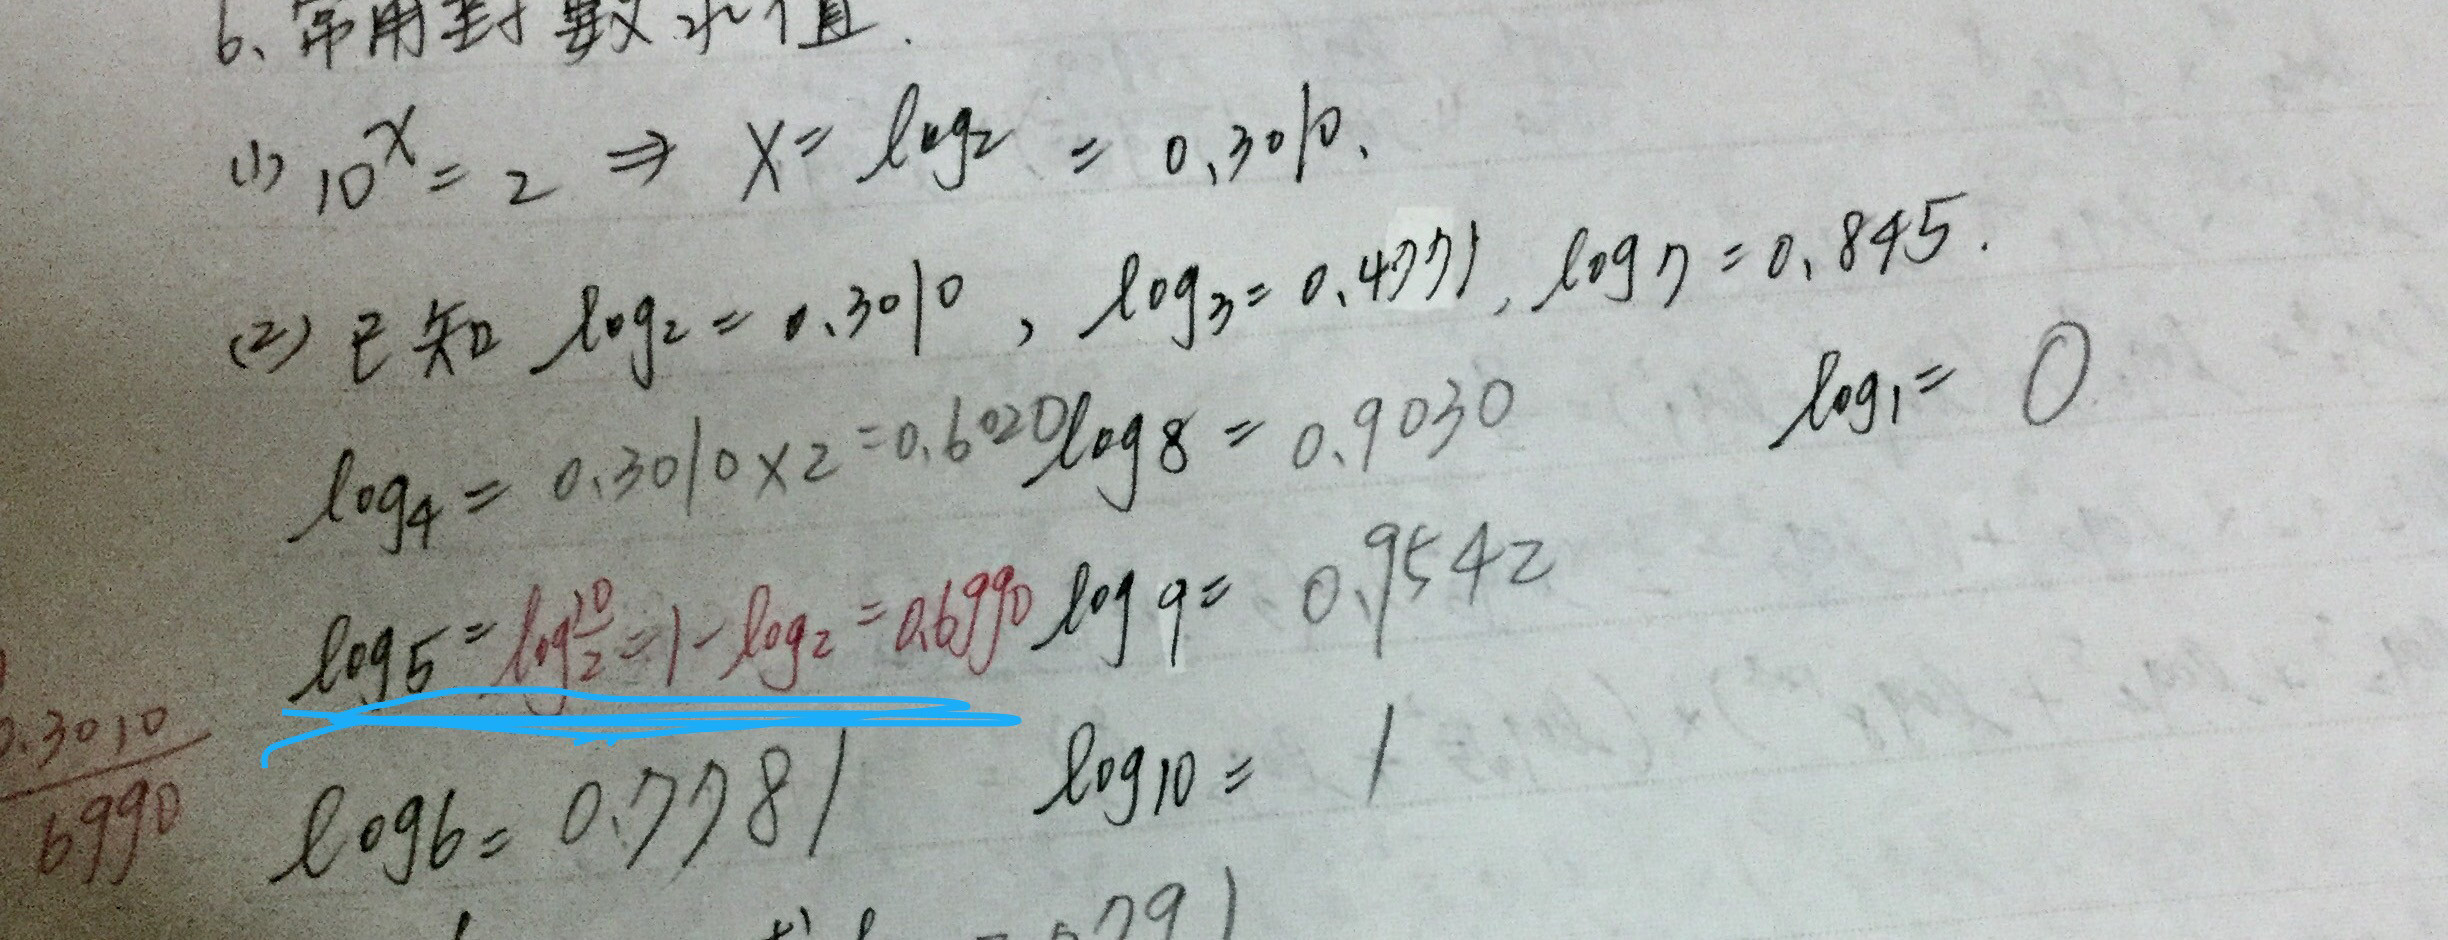 6、常用對數求值.
(1) 10^x = 2 ⇒ x = log2 = 0.3010.
(2) 已知 log2 = 0.3010, log3 = 0.4771, log7 = 0.845.
log4 = 0.3010×2 = 0.6020 log8 = 0.9030 log1 = 0
log5 = log 10/2 = 1 - log2 = 0.6990 log9 = 0.9542
0.3010
6990
log6 = 0.7781 log10 = 1